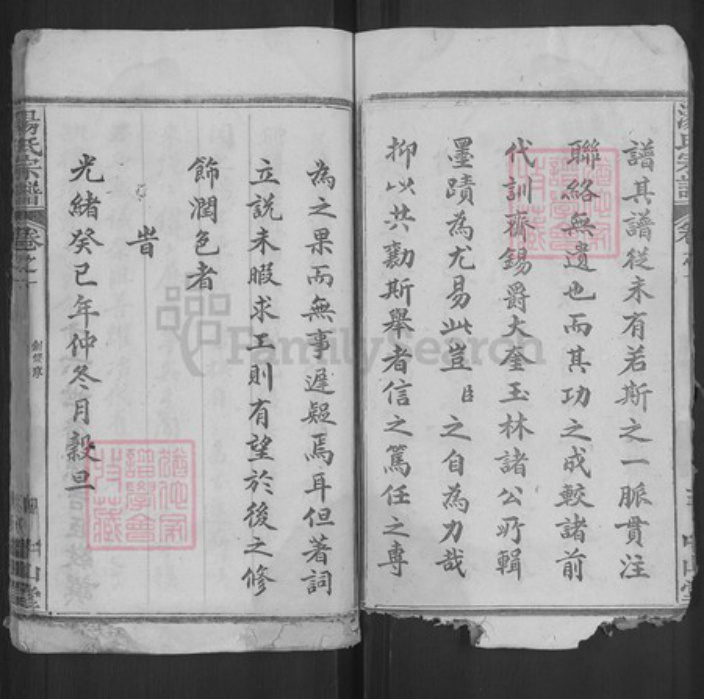 譜其譜從未有若斯之一脈貫注
聯絡無遺也而其功之成較諸前
代訓齋錫爵大奎玉林諸公所輯
墨蹟為尤易此豈臣之自為力哉
抑以共勷斯舉者信之篤任之專
為之果而無事遲疑焉耳但著詞
立說未暇求工則有望於後之修
飾潤色者
旹
光緒癸巳年仲冬月穀旦
湯氏宗譜
卷之一
中山堂
FamilySearch